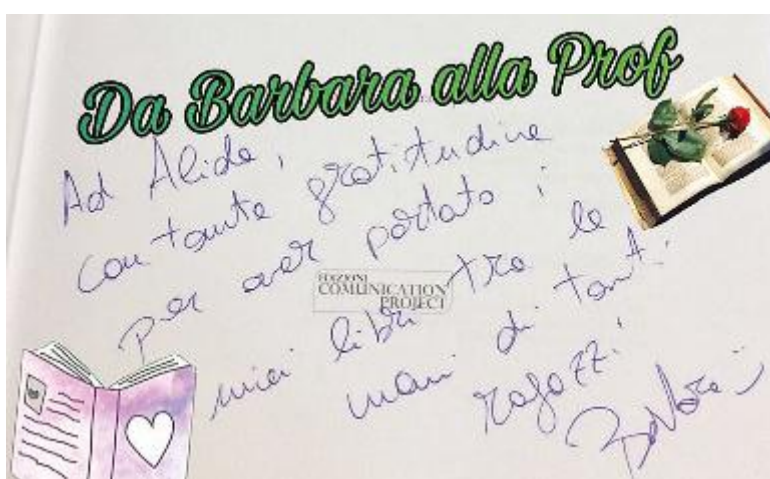 Da Barbara alla Prof
Ad Alida,
con tanta gratitudine
per aver portato i
miei libri tra le
mani di tanti
ragazzi!
Barbara
EDIZIONI
COMUNICATION
PROJECT